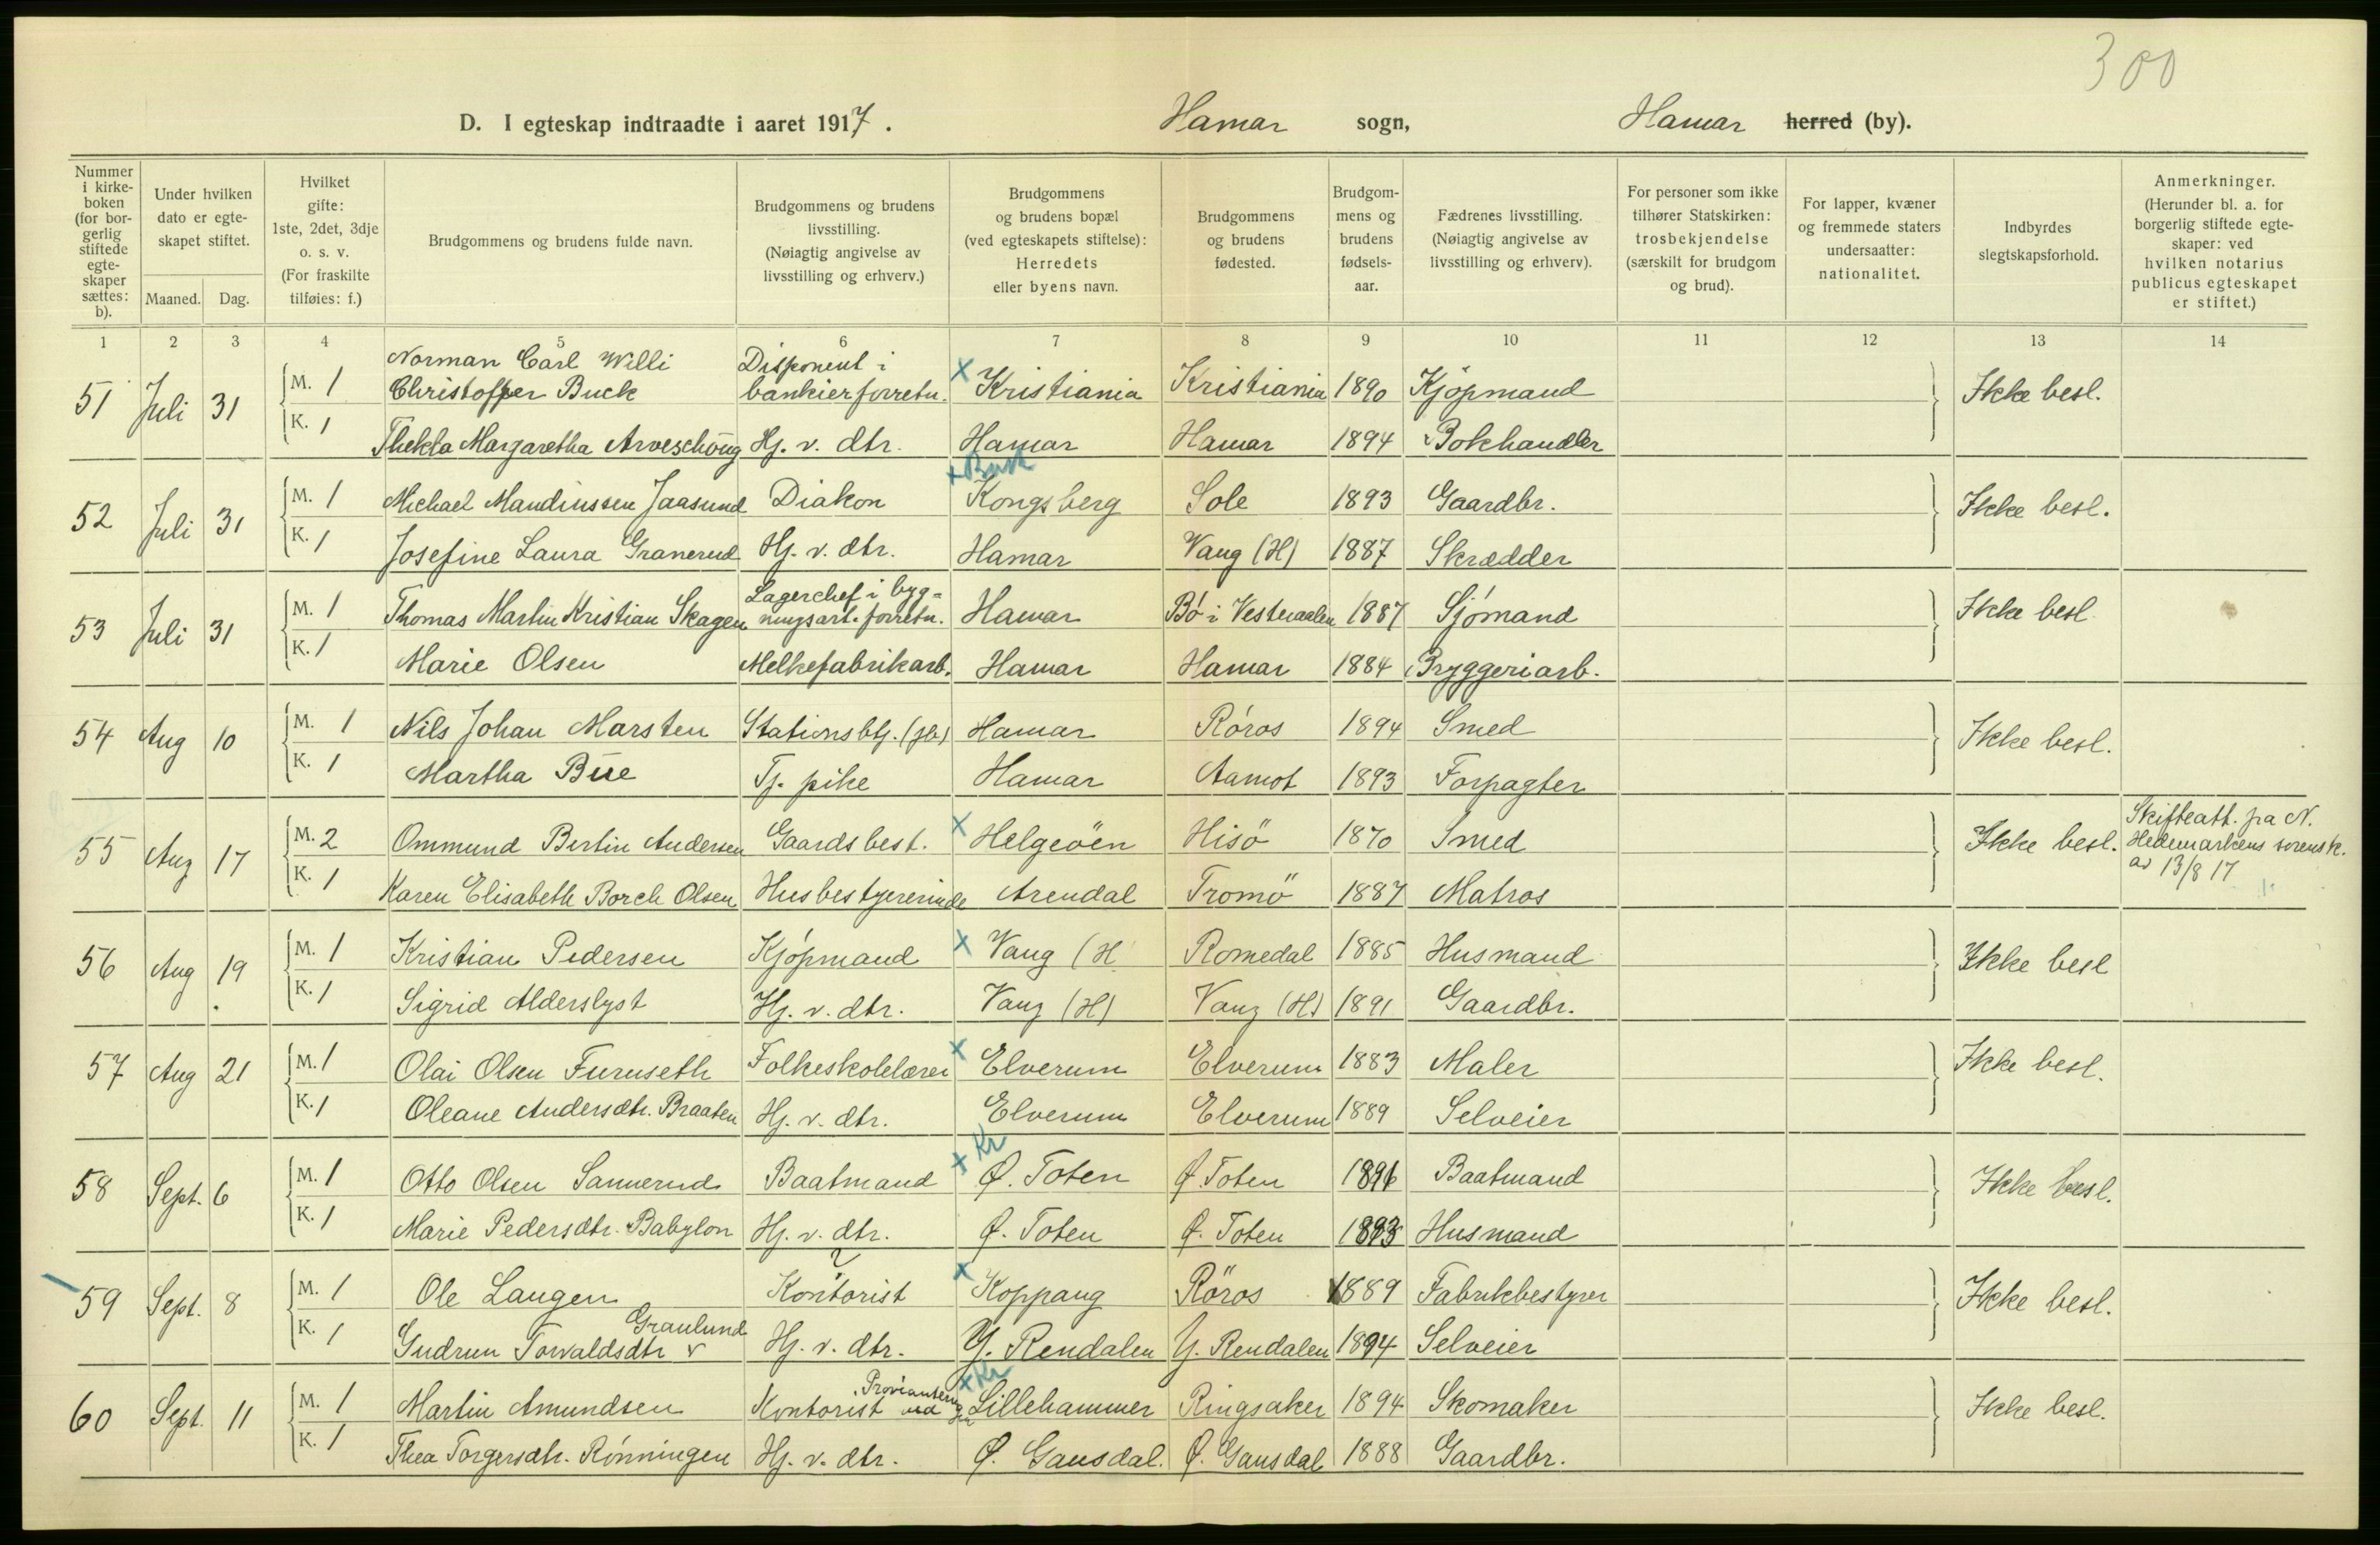 300
D. I egteskap indtraadte i aaret 1917. Hamar sogn, Hamar herred (by).
Nummer i kirke-boken (for bor-gerlig stiftede egte-skaper sættes: b).
Under hvilken dato er egte-skapet stiftet.
Maaned. Dag.
Hvilket gifte: 1ste, 2det, 3dje o. s. v. (For fraskilte tilføies: f.)
Brudgommens og brudens fulde navn.
Brudgommens og brudens livsstilling. (Nøiagtig angivelse av livsstilling og erhverv.)
Brudgommens og brudens bopæl (ved egteskapets stiftelse): Herredets eller byens navn.
Brudgommens og brudens fødested.
Brudgom-mens og brudens fødsels-aar.
Fædrenes livsstilling. (Nøiagtig angivelse av livsstilling og erhverv).
For personer som ikke tilhører Statskirken: trosbekjendelse (særskilt for brudgom og brud).
For lapper, kvæner og fremmede staters undersaatter: nationalitet.
Indbyrdes slegtskapsforhold.
Anmerkninger. (Herunder bl. a. for borgerlig stiftede egte-skaper: ved hvilken notarius publicus egteskapet er stiftet.)
1 2 3 4 5 6 7 8 9 10 11 12 13 14
51 Juli 31 M. 1 Norman Carl Willi Christoffer Buck Disponent i bankierforretn. x Kristiania Kristiania 1890 Kjöpmand Ikke besl.
K. 1 Thekla Margaretha Arveschoug Hj. v. dtr. Hamar Hamar 1894 Bokhandler
52 Juli 31 M. 1 Michael Maudiussen Jaasund Diakon x Busk Kongsberg Sole 1893 Gaardbr. Ikke besl.
K. 1 Josefine Laura Granerud Hj. v. dtr. Hamar Vang (H) 1887 Skrædder
53 Juli 31 M. 1 Thomas Martin Kristian Skagen Lagerchef i byg=ningsart. forretn. Hamar Bó i Vesteraalen 1887 Sjómand Ikke besl.
K. 1 Marie Olsen Melkefabrikarb. Hamar Hamar 1884 Bryggeriarb.
54 Aug 10 M. 1 Nils Johan Marsten Stationsbtj. (jb) Hamar Róros 1894 Smed Ikke besl.
K. 1 Martha Bue Tj. pike Hamar Aamot 1893 Forpagter
55 Aug 17 M. 2 Ommund Bertin Andersen Gaardsbest. x Helgeöen Hisö 1870 Smed Ikke besl. Skifteatt. fra N. Hedemarkens sorensk. av 13/8 17
K. 1 Karen Elisabeth Borch Olsen Husbestyrerinde Arendal Tromö 1887 Matros
56 Aug 19 M. 1 Kristian Pedersen Kjópmand x Vang (H Romedal 1885 Husmand Ikke besl
K. 1 Sigrid Alderslyst Hj. v. dtr. Vang (H) Vang (H) 1891 Gaardbr.
57 Aug 21 M. 1 Olai Olsen Furuseth Folkeskolelærer x Elverum Elverum 1883 Maler Ikke besl.
K. 1 Oleane Andersdtr. Braaten Hj. v. dtr. Elverum Elverum 1889 Selveier
58 Sept. 6 M. 1 Otto Olsen Sannerud Baatmand x Kr Ø. Toten Ø. Toten 1896 Baatmand Ikke besl.
K. 1 Marie Pedersdtr. Babylon Hj. v. dtr. Ø. Toten Ø. Toten 1893 Husmand
59 Sept. 8 M. 1 Ole Langen Kontorist x Koppang Röros 1889 Fabrikbestyrer Ikke besl.
K. 1 Gudrun Torvaldsdtr v Granlund Hj. v. dtr. Y. Rendalen Y. Rendalen 1894 Selveier
60 Sept. 11 M. 1 Martin Amundsen Kontorist ved x Kr Lillehammer Ringsaker 1894 Skomaker Ikke besl.
K. 1 Thea Torgersdtr. Rónningen Hj. v. dtr. Ø. Gausdal. Ø. Gausdal 1888 Gaardbr.